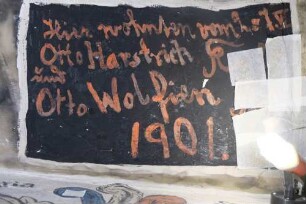 Hier wohnten vom
Otto Harstrich
und
Otto Wolfien
1901.